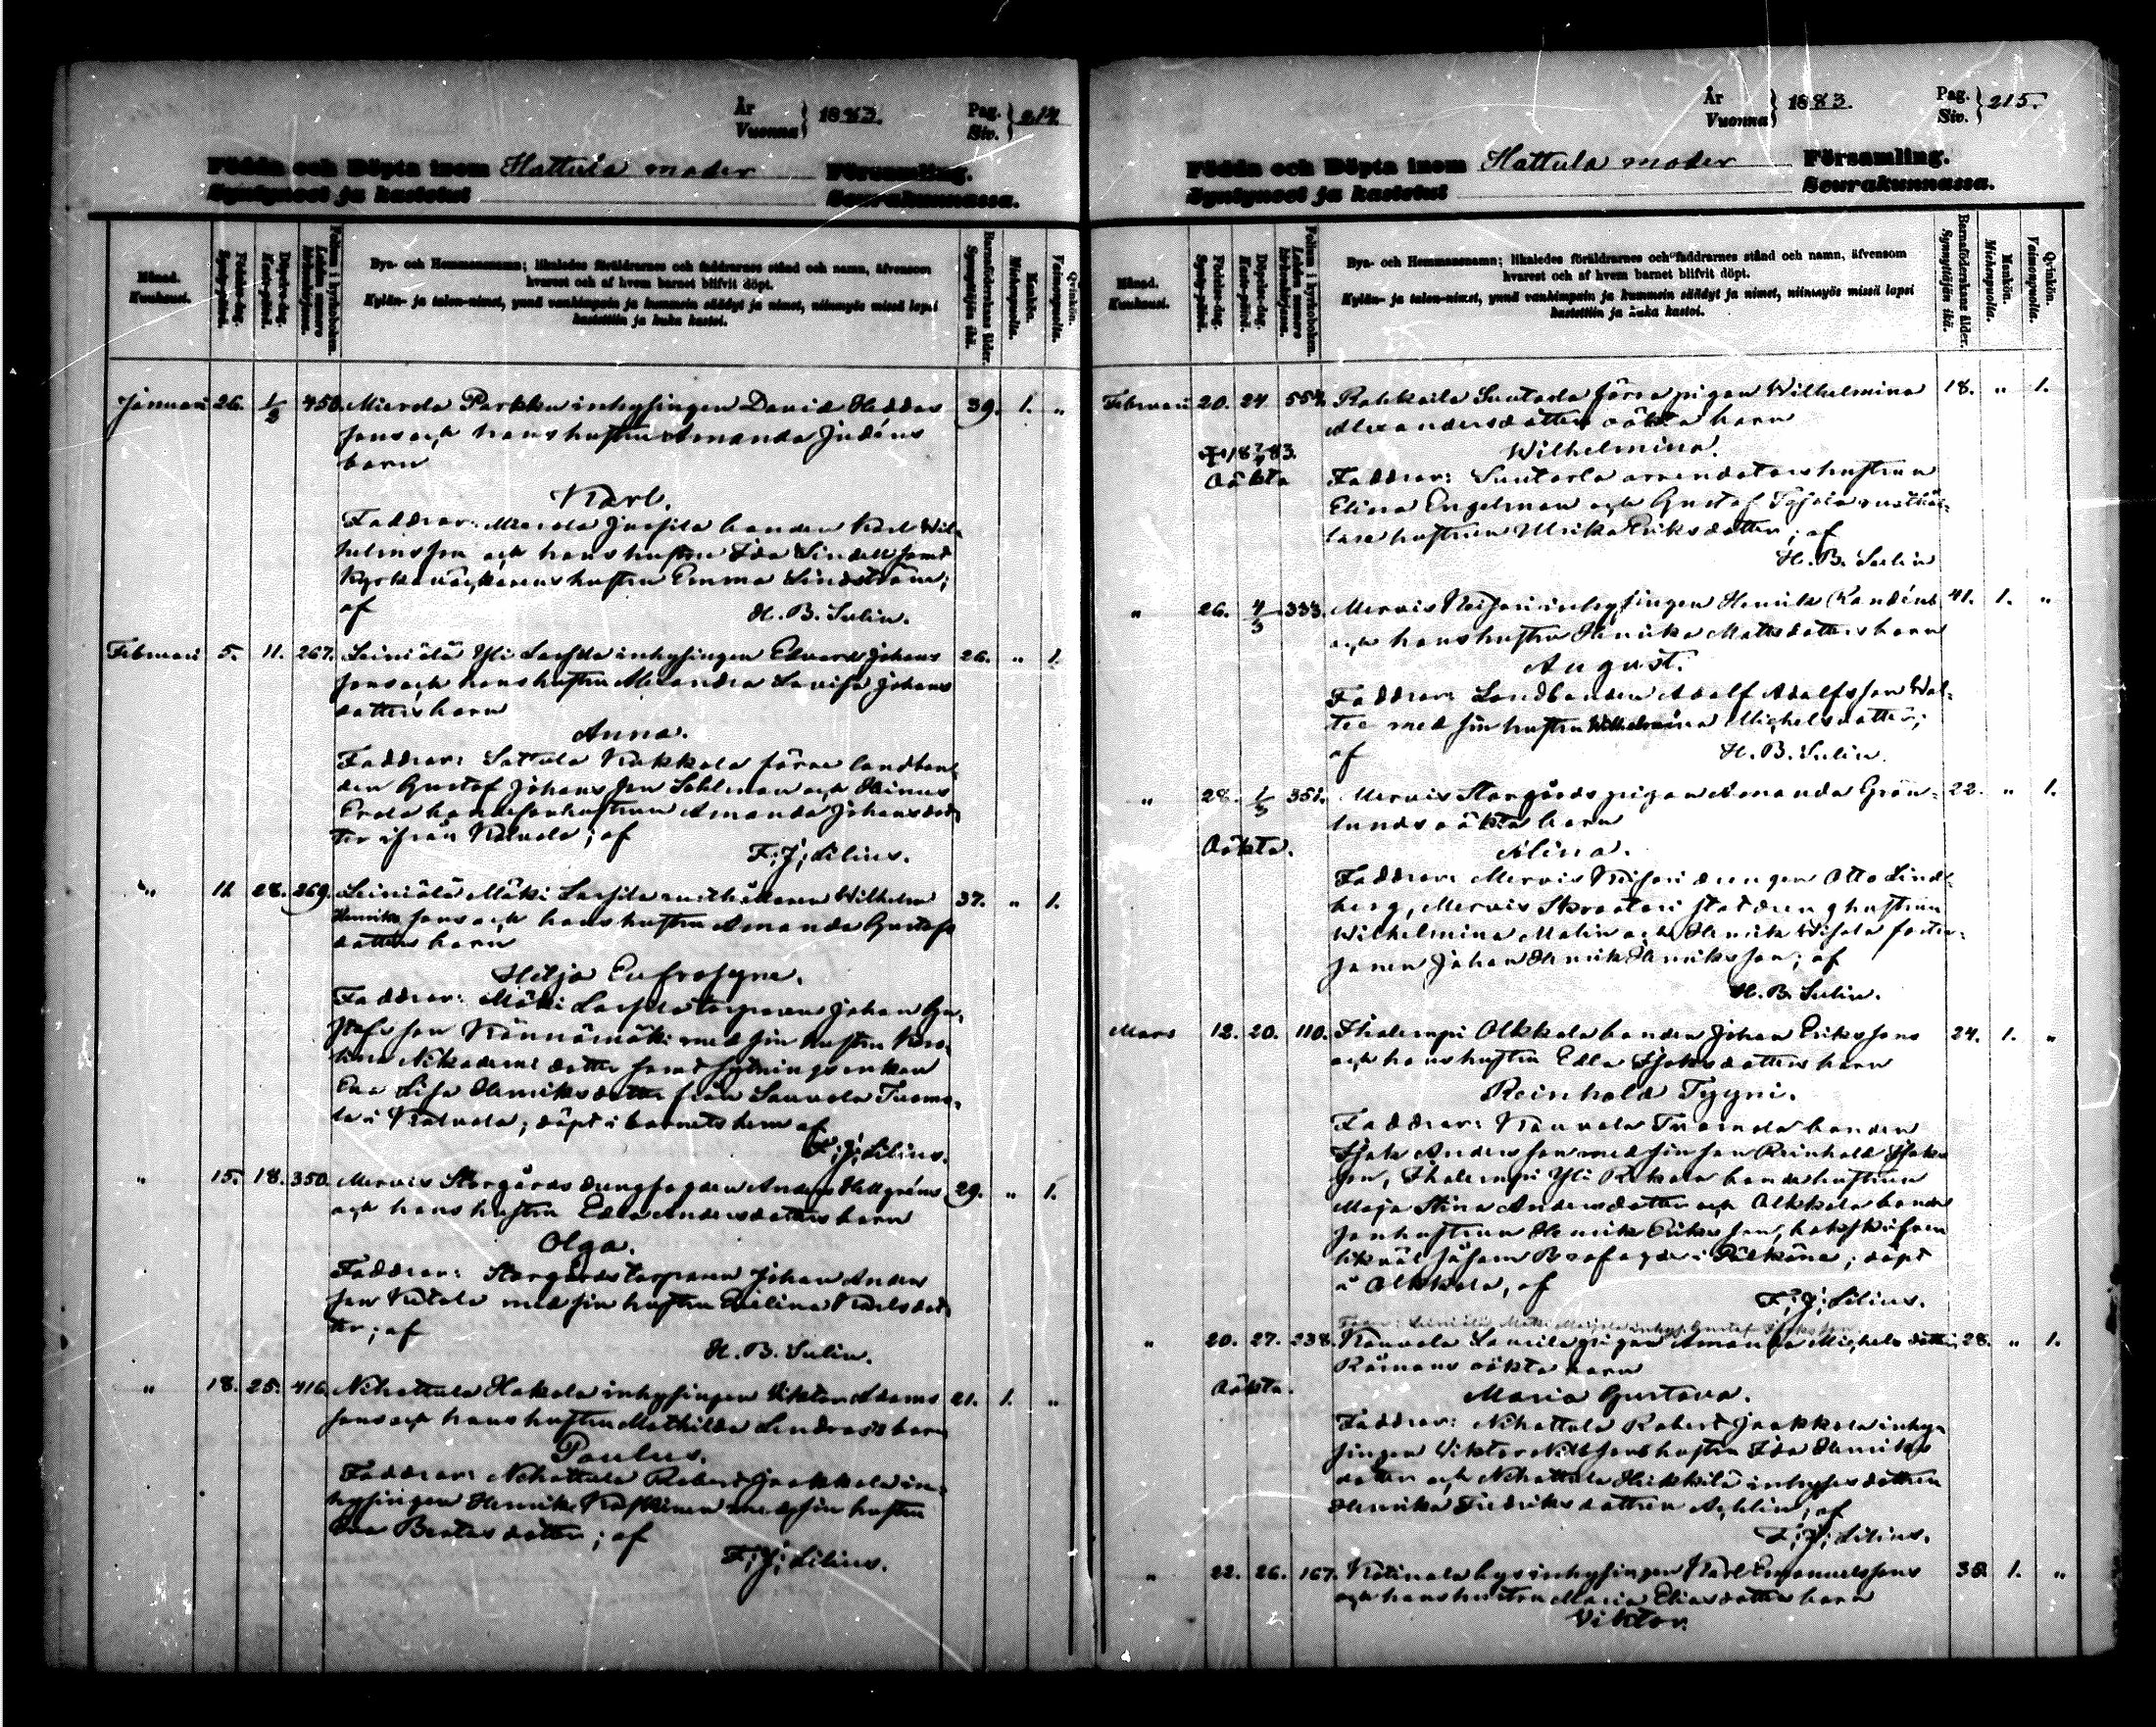 År Vuonna } 1883. Pag. Siv. } 214
Födda och Döpta inom Hattula moder Församling.
Syntyneet ja kastetut Seurakunnassa.
Månad. Kuukausi.
Födelse-dag. Synty-päivä.
Döpelse-dag. Kaste-päivä.
Folium i kyrkoboken. Lehden numero kirkonkirjassa.
Bya- och Hemmansnamn; likaledes föräldrarnes och faddrarnes stånd och namn, äfvensom
hvarest och af hvem barnet blifvit döpt.
Kylän- ja talon-nimet, ynnä vanhimpain ja kummein säädyt ja nimet, niinmyös missä lapsi
kastettiin ja kuka kastoi.
Barnaföderskans ålder. Synnyttäjän ikä.
Mankön. Miehenpuolia.
Qvinkön. Vaimonpuolia.
Januari 26. 1/3 450. Mierola Parkku inhysingen David Heddas
sons och hans hustru Amanda Judéns
barn
Karl.
Faddrar: Mierola Jussila bonden Karl Wil-
helmsson och hans hustru Ida Lindell samt
Kyrkoväktarens hustru Emma Lindström;
af H. B. Sulin.
Februari 5. 11. 267. Leiniälä Yli Lassila inhysingen Edvard Johans
sons och hans hustru Alexandra Lovisa Johans
dotters barn 26. " 1.
Anna.
Faddrar: Sattula Kukkola förre landbon-
den Gustof Johansson Sohlman och
bondesonhustrun Amanda Johansdot-
ter ifrån Kalvola; af
F. J. Lilius.
" 11 28. 269. Leiniälä Mäki Lassila rusthållaren Wilhelm
Henriks sons och hans hustru Amanda Gustafs
dotters barn 37. " 1.
Hilja Eufrosyne.
Faddrar: Mäki Lassila torparen Johan Gu-
stafsson Kännömäki med sin hustru Karo-
lina Nikodemi dotter samt sytningsenkan
Eva Lisa Henriksdotter från Sauvola Tuomo-
la i Kalvola; döpt i barnets hem af
F. J. Lilius.
" 15. 18. 350. Mervis Storgårds drängfogden Anders Hellgréns
och hans hustru Edla Andersdotters barn 29. " 1.
Olga.
Faddrar: Storgårds torparen Johan Anders
son Ketola med sin hustru Evelina Karlsdot-
ter; af
H. B. Sulin.
" 18. 25. 416. Nihattula Hakola inhysingen Viktor Adams
sons och hans hustru Mathilda Lindroos barn 21. 1. "
Paulus.
Faddrar: Nihattula Robert Jaakkola in-
hysingen Henrik med sin hustru
Eva Beatasdotter; af
F. J. Lilius.
År Vuonna } 1883. Pag. Siv. } 215.
Födda och Döpta inom Hattula moder Församling.
Syntyneet ja kastetut Seurakunnassa.
Månad. Kuukausi.
Födelse-dag. Synty-päivä.
Döpelse-dag. Kaste-päivä.
Folium i kyrkoboken. Lehden numero kirkonkirjassa.
Bya- och Hemmansnamn; likaledes föräldrarnes och faddrarnes stånd och namn, äfvensom
hvarest och af hvem barnet blifvit döpt.
Kylän- ja talon-nimet, ynnä vanhimpain ja kummein säädyt ja nimet, niinmyös missä lapsi
kastettiin ja kuka kastoi.
Barnaföderskans ålder. Synnyttäjän ikä.
Mankön. Miehenpuolia.
Qvinkön. Vaimonpuolia.
Februari 20. 24 554. Rahkoila Suutarla förra pigan Wilhelmina
Alexandersdotters oäkta barn 18. " 1.
Wilhelmina.
Oäkta Faddrar: Suutarla arrendators hustrun
Elina Engelman och Gustof rusthål-
lare hustrun Ulrika Eriksdotter; af
H. B. Sulin
" 26. 4/3 333. Mervis Keisari inhysingen Henrik Randéns
och hans hustru Henrika Mattsdotters barn 41. 1. "
August.
Faddrar: Landbonden Adolf Adolfsson Wal-
tee med sin hustru Wilhelmina Michelsdotter;
af H. B. Sulin.
" 28. 1/3 351. Mervis Storgårds pigan Amanda Grön-
lunds oäkta barn 22. " 1.
Oäkta. Alina.
Faddrar: Mervis Keisari drängen Otto Lind-
berg, Mervis Skrootari statdräng hustrun
Wilhelmina Malin och Henrik foster-
sonen Johan Henrik Henriksson; af
H. B. Sulin.
Mars 12. 20. 110. Ihalempi Olkkola bonden Johan Erikssons
och hans hustru Edla Isaksdotters barn 24. 1. "
Reinhold Tyyni.
Faddrar: Kauvola Tuomola bonden
Isak Andersson med sin son Reinhold Isaks
son, Ihalempi Yli Rekola bondehustrun
Maja Stina Andersdotter och Olkkola bonde
sonhustrun Henrik Eriksson,
i Pälkäne; döpt
i Olkkola, af
F. J. Lilius.
" 20. 27. 238. Kauvola pigan Amanda Michelsdotter
Råmans oäkta barn 28. " 1.
Oäkta. Maria Gustava.
Faddrar: Nihattula Robert Jaakkola inhy-
singen Viktor Nillssons hustru Ida Henriks
dotter och Nihattula Heikkilä inhyses dottren
Henrika Fredriksdottren Ahlin; af
F. J. Lilius.
" 22. 26. 167. Ketinala bys inhysingen Karl Emanuelssons
och hans hustru Maria Eliasdotters barn 38. 1. "
Viktor.